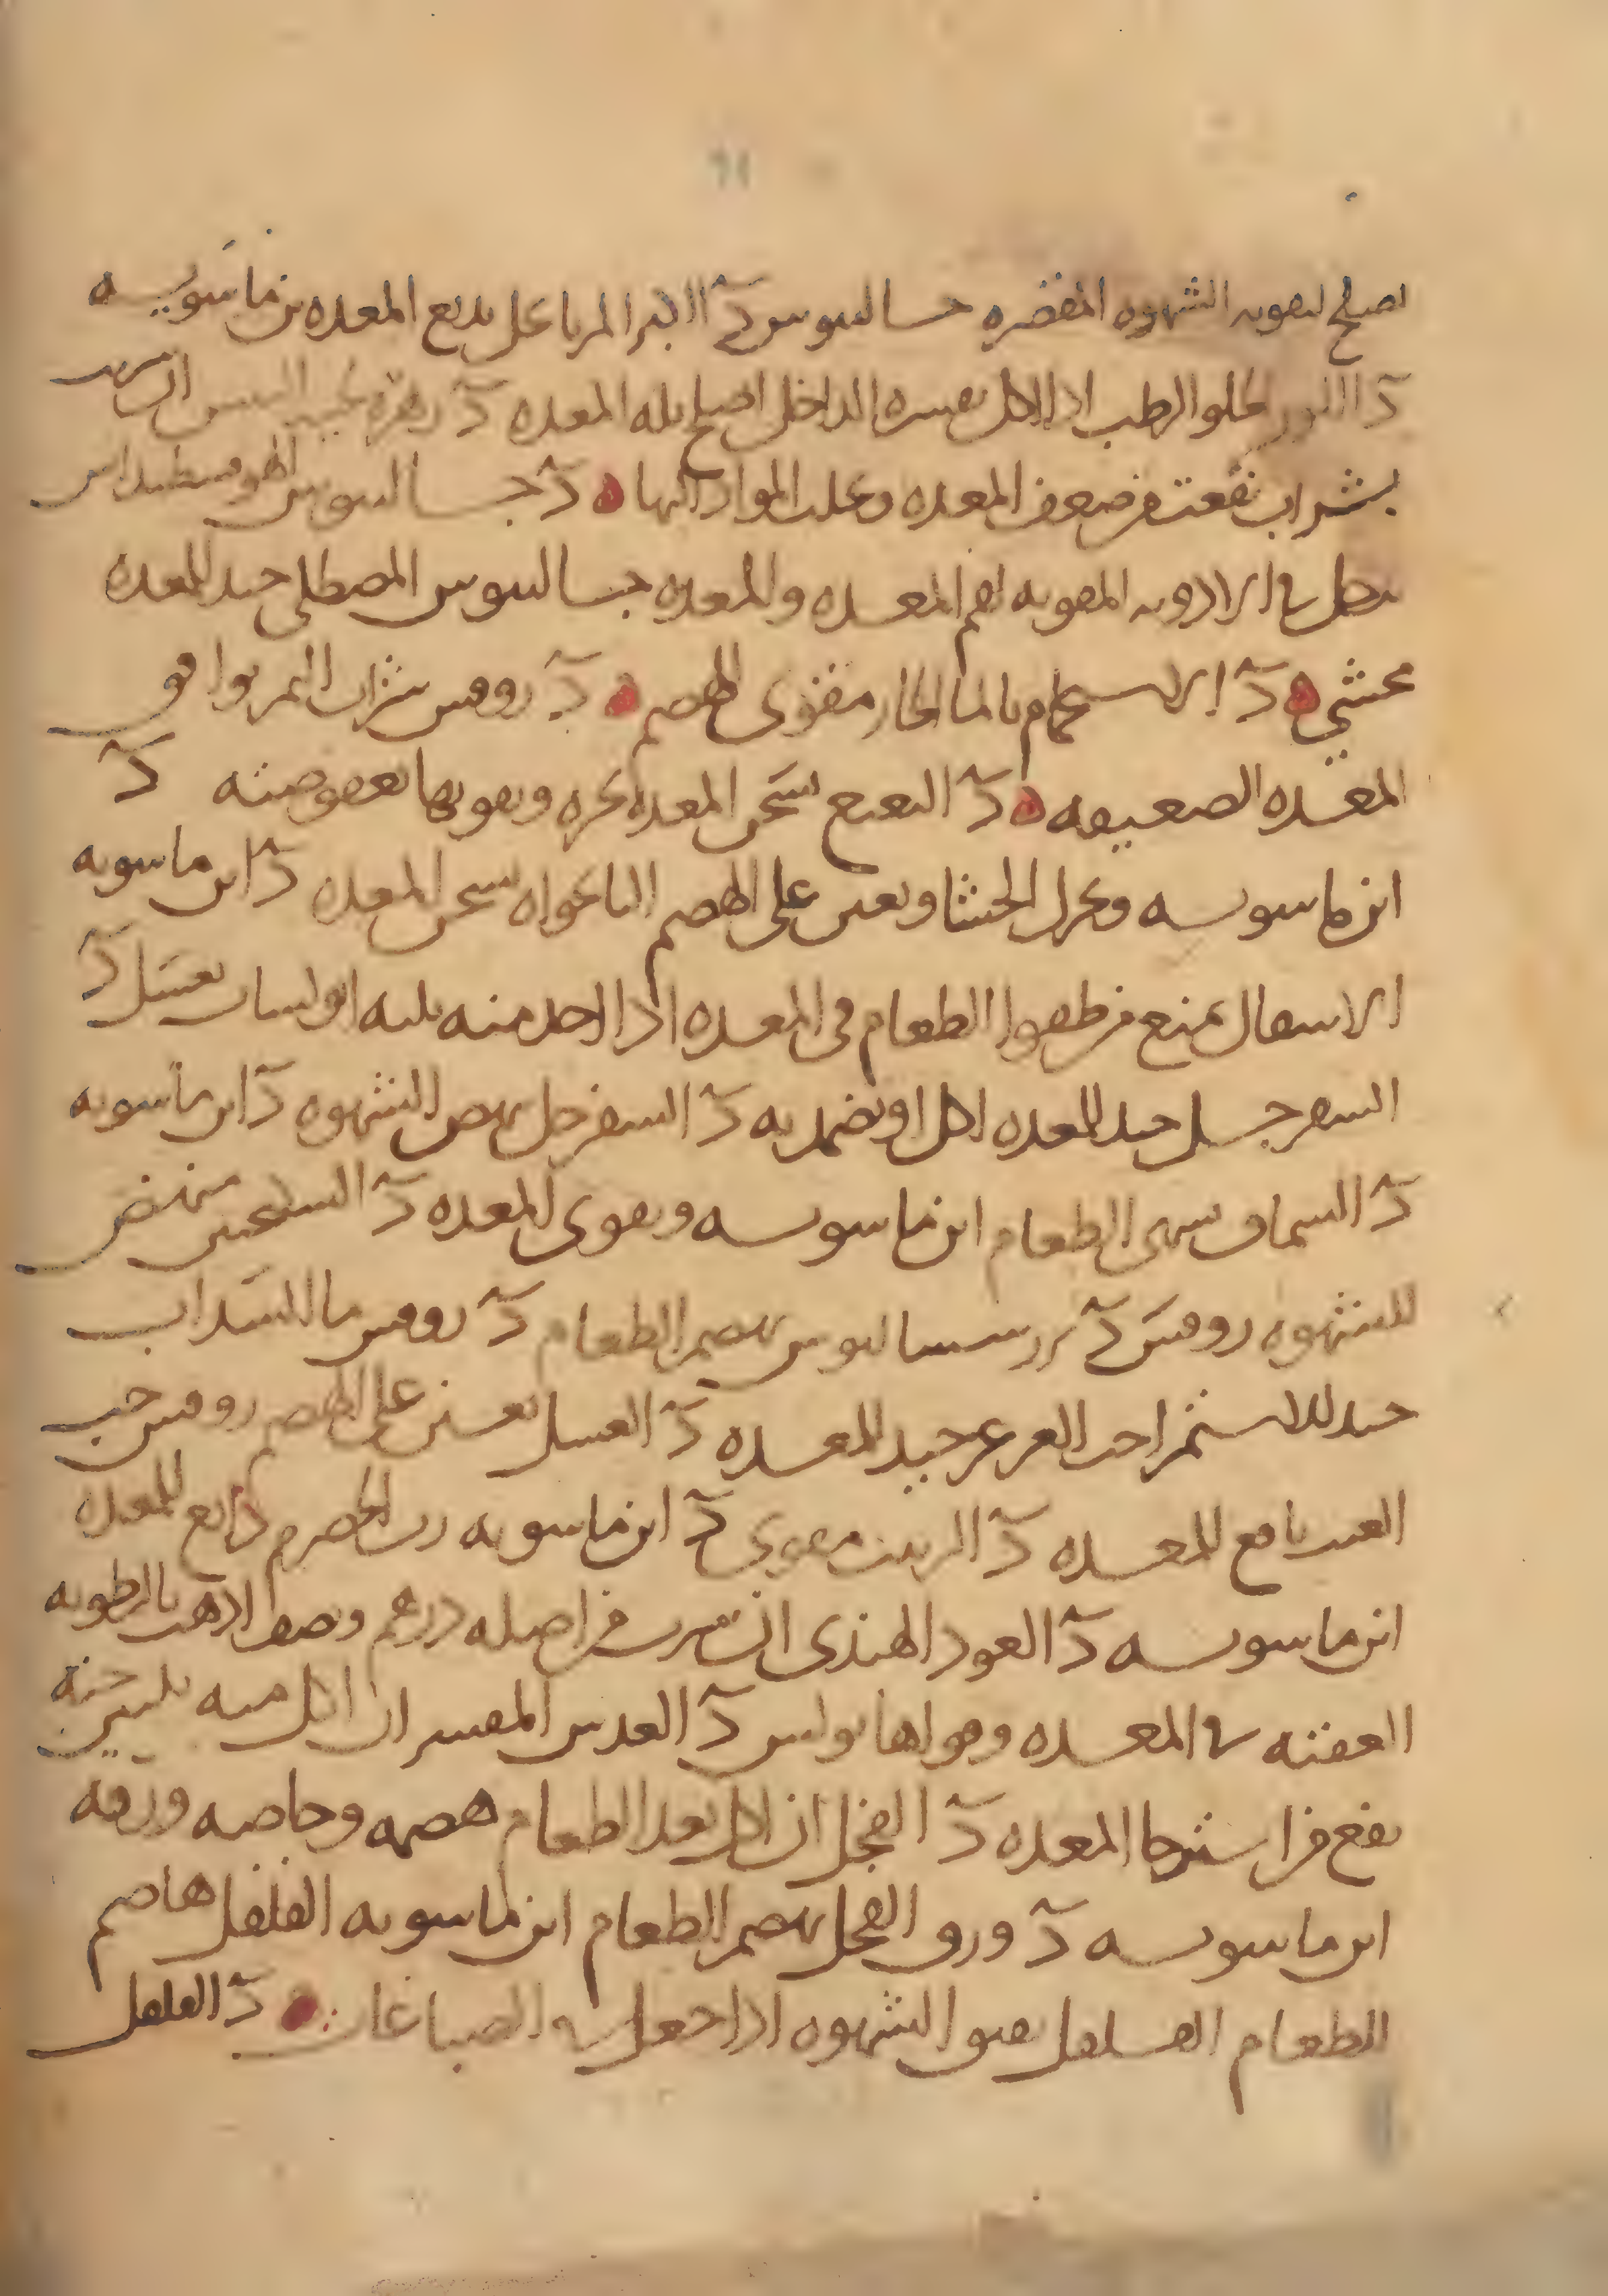 يصلح لتقويه الشهوه المقصره جالينوس د الا المربا بالعسل يدبغ المعده بن ماسويه
د اللوز الحلو الرطب اذا اكل بقشره الداخل اصلح بله المعده د زهره ان شرب
بشراب نفعت من ضعف المعده وغلب المواد اليها ه د جالينوس الهوفسطيداس
يدخل في الادويه المقويه لفم المعده والمعده جالينوس المصطكى جيد للمعده
محشي ه د الاستحمام بالما الحار مقوى الهضم ه د روفس شراب التمر يوافق
المعده الضعيفه ه د النعنع يسخن المعده بحره ويقويها بعفوصته د
ابن ماسويه ويحرك الجشا ويعين على الهضم النانخواه يسخن المعده د ابن ماسويه
الاسقال يمنع من طفو الطعام في المعده اذا اخذ منه ثلثه ابولسات بعسل د
السفرجل جيد للمعده اكل او تضمد به د السفرجل ينهض الشهوه د ابن ماسويه
د السماق يشهى الطعام ابن ماسويه ويقوى المعده د السكنجبين منهض
للشهوه روفس د جالينوس يهضم الطعام د روفس ما السذاب
جيد للاستمرا حب العرعر جيد للمعده د العسل يعين على الهضم روفس حب
العنب نافع للمعده د الزبيب مقوى د ابن ماسويه رب الحصرم دابغ للمعده
ابن ماسويه د العود الهندى ان شرب من اصله درهم ونصف اذهب بالرطوبه
العفنه في المعده وقواها بولس د العدس المقشر ان اكل منه ثلثين حبه
نفع من استرخا المعده د الفجل ان اكل بعد الطعام هضمه وخاصه ورقه
ابن ماسويه د ورق الفجل يهضم الطعام ابن ماسويه الفلفل هاضم
الطعام الفلفل يفتق الشهوه اذا جعل في الصباغات ه د الفلفل